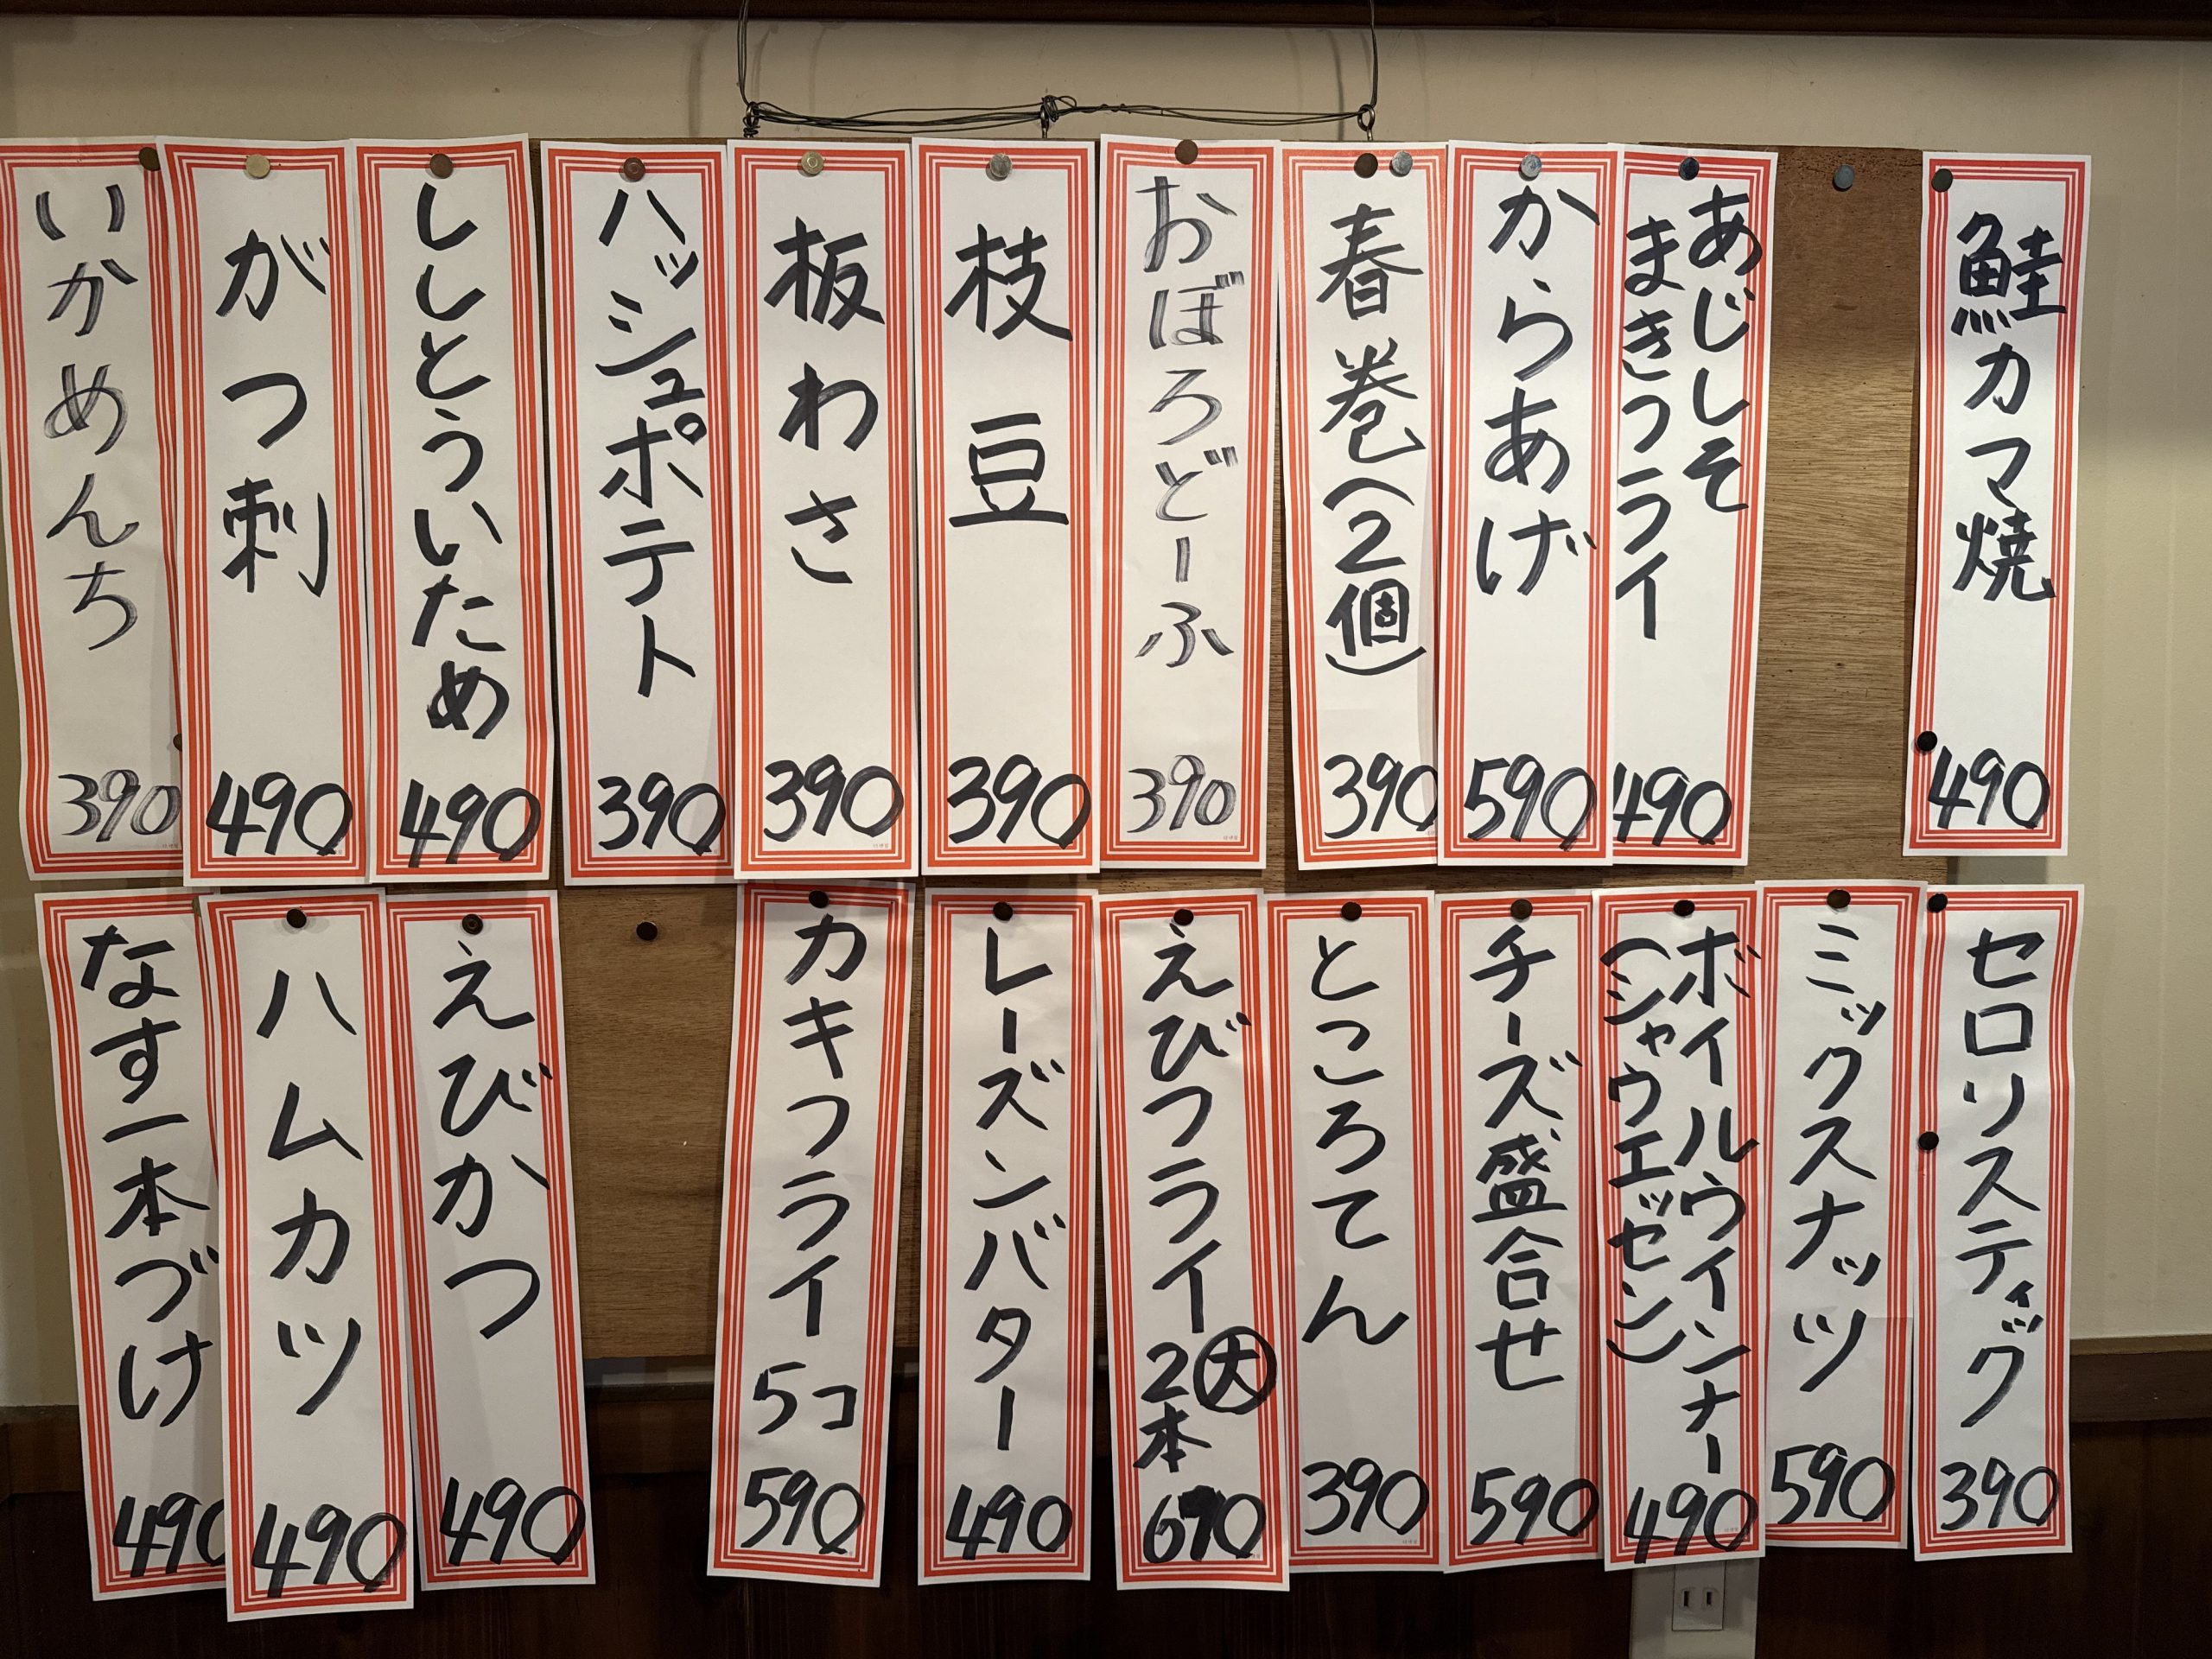 鮭カマ焼
490
あじしそ
まきフライ
490
からあげ
590
春巻(2個)
390
おぼろどーふ
390
枝豆
390
板わさ
390
ハッシュポテト
390
ししとういため
490
がつ刺
490
いかめんち
390
セロリスティック
390
ミックスナッツ
590
ボイルウインナー
(シャウエッセン)
490
チーズ盛合せ
590
ところてん
390
えびフライ大
2本
690
レーズンバター
490
カキフライ 5コ
590
えびかつ
490
ハムカツ
490
なす一本づけ
490